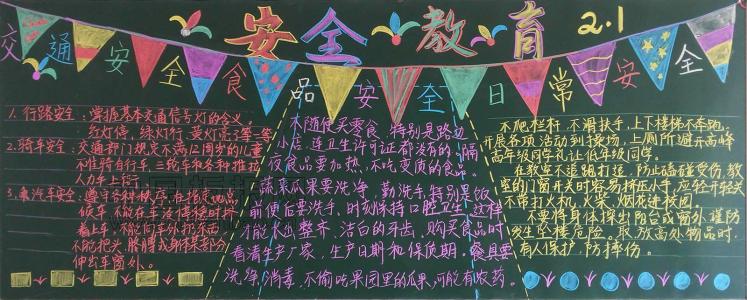 安全教育 2.1
交通安全食品安全日常安全
1. 行路安全：掌握基本交通信号灯的含义。
红灯停，绿灯行，黄灯亮了等一等
2. 骑车安全：交通部门规定不满12周岁的儿童
不准骑自行车 三轮车和各种推拉
人力车上行
3. 乘汽车安全：遵守各种秩序，在指定地点
候车 不能在车没停稳时挤
着上车，不能向车外扔东西
不能把头 胳膊或身体某部分
伸出车窗外。
不随便买零食，特别是路边
小店，连卫生许可证都没有的，隔
夜食品要加热，不吃变质的食品。
蔬菜瓜果要洗净，勤洗手，特别是饭
前便后要洗手，时刻保持口腔卫生，这样
才能永远整齐，洁白的牙齿，购买食品时
看清生产厂家，生产日期和保质期。餐具要
洗净，消毒，不偷吃果园里的瓜果，可能有农药。
不爬栏杆，不滑扶手，上下楼梯不奔跑。
开展各项活动到操场，上厕所避开高峰
高年级同学礼让低年级同学。
在教室不追跑打逗，防止磕碰受伤，教
室的门窗开关时容易挤压小手，应轻开轻关
不带打火机，火柴，烟花进校园。
不要将身体探出阳台或窗外，谨防
发生坠楼危险。取放高处物品时，
有人保护，防摔伤。